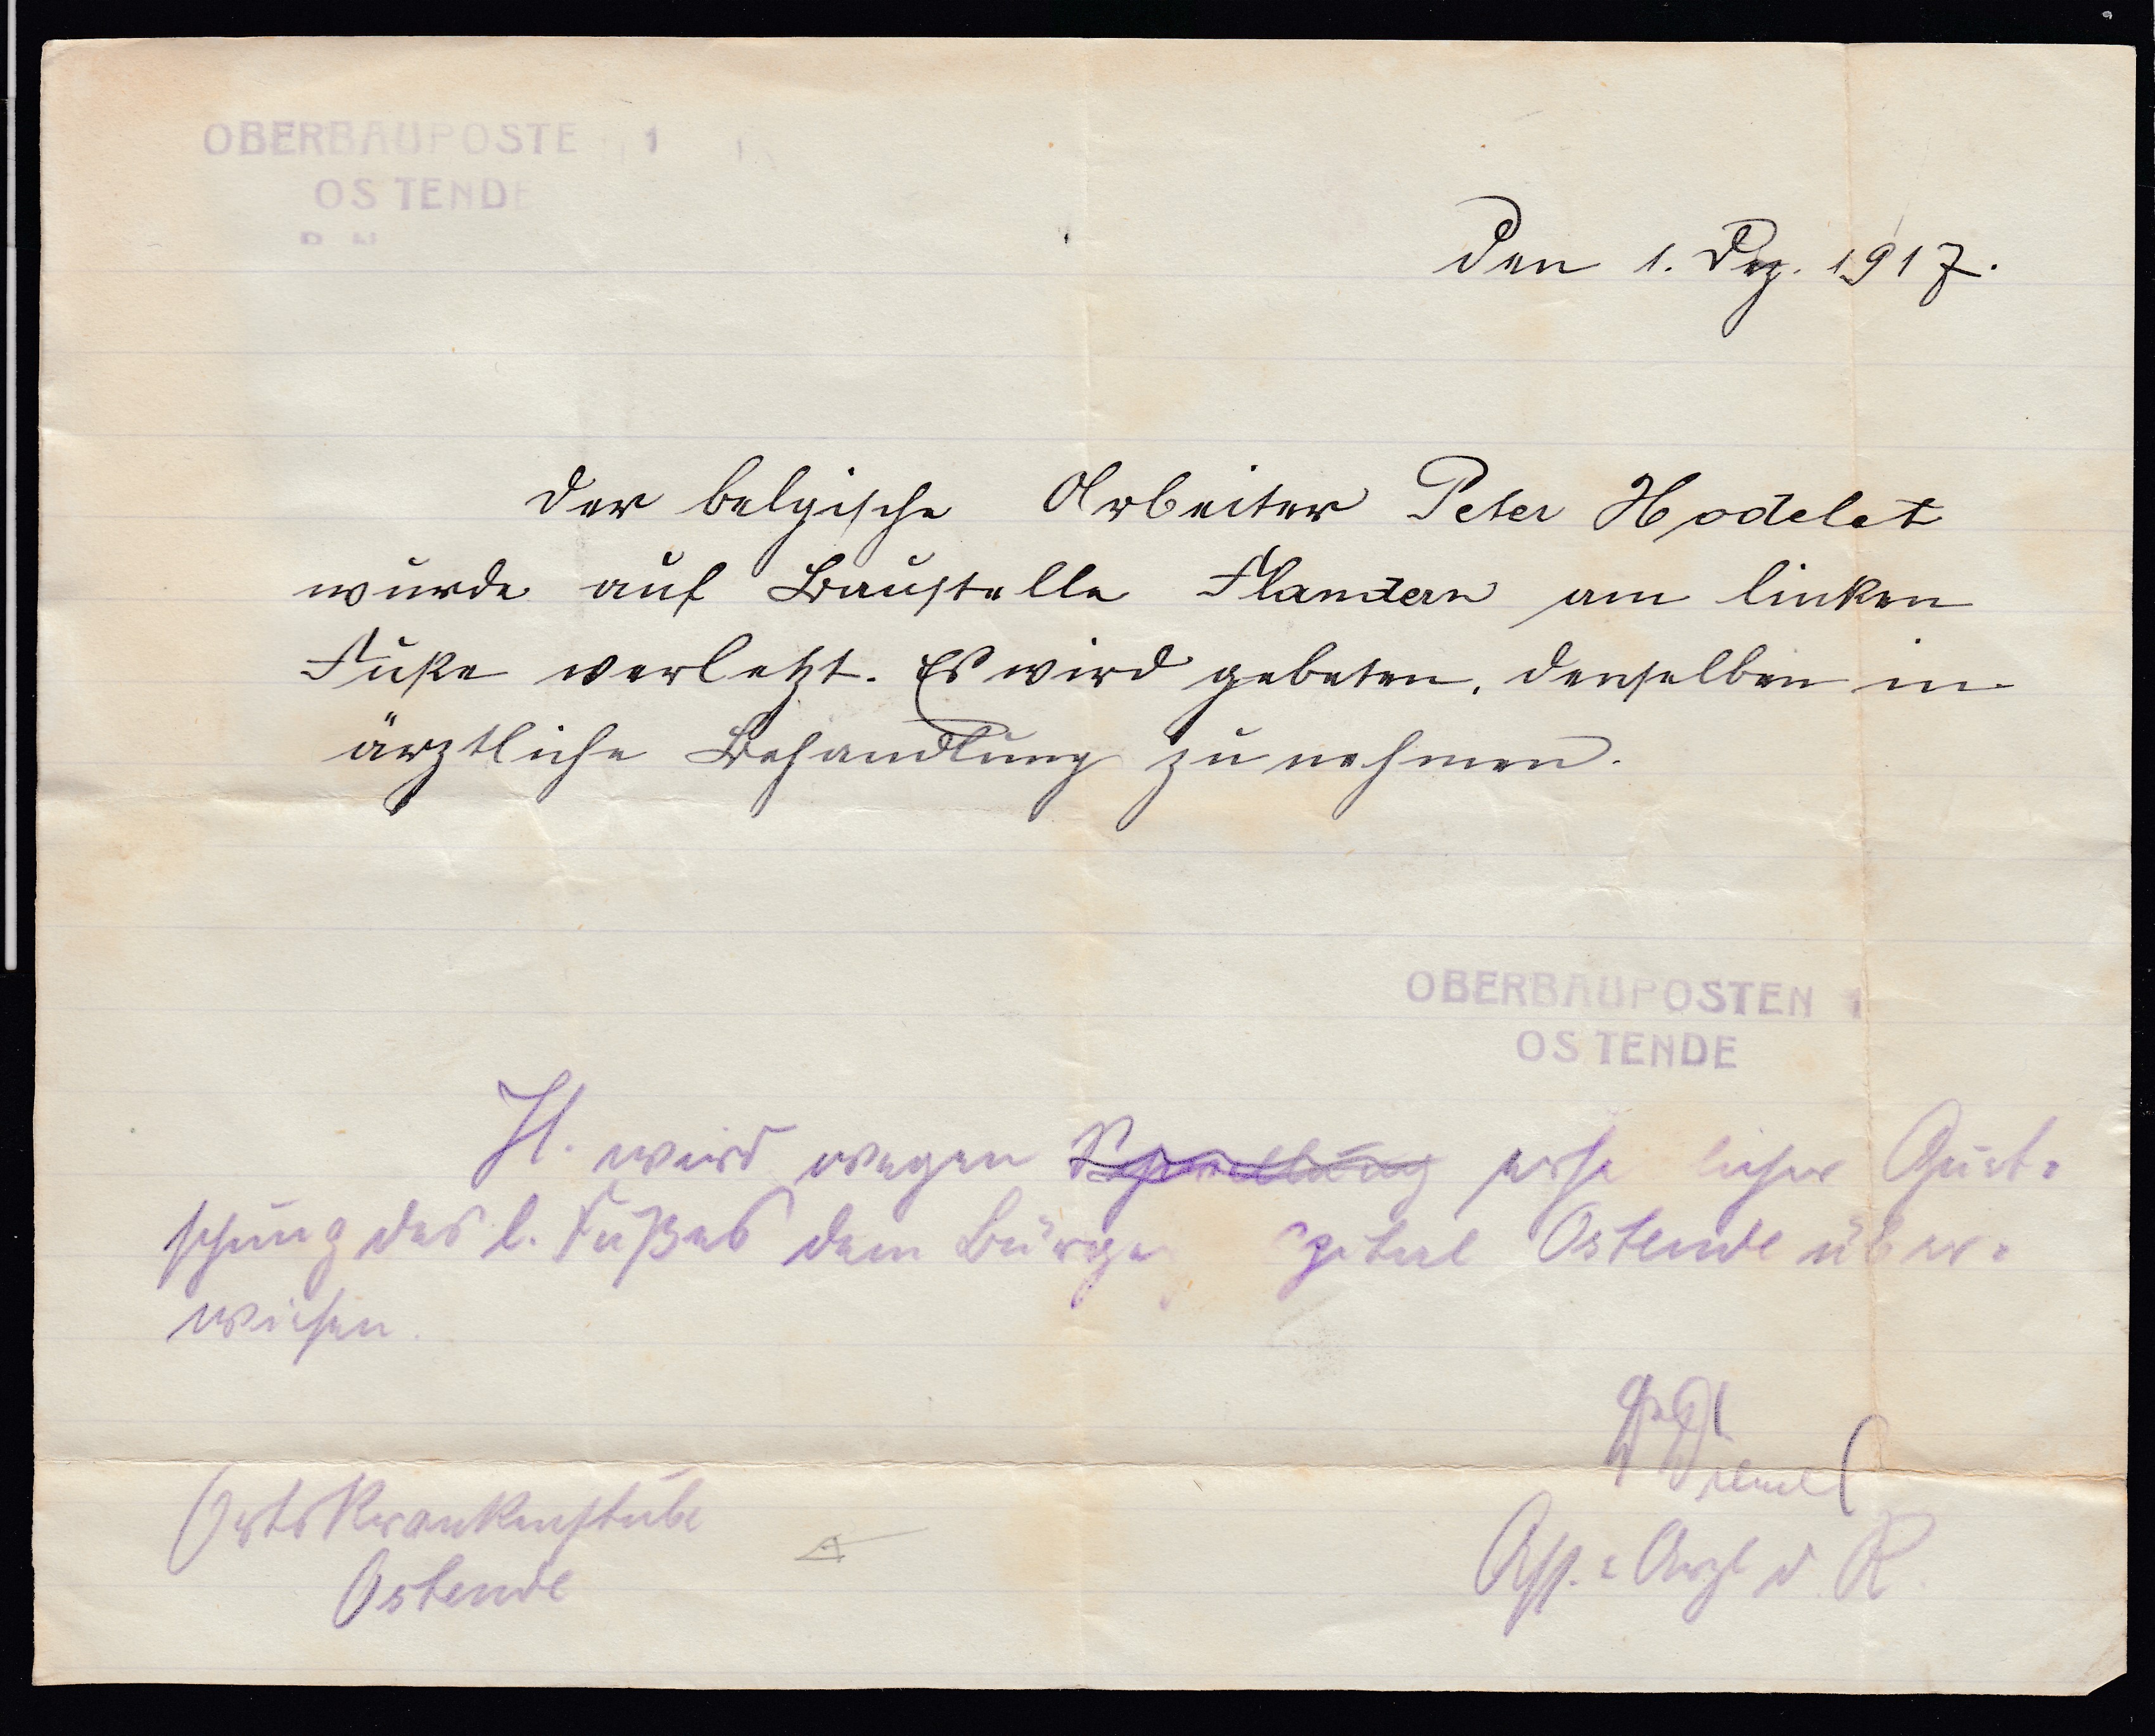 OBERBAUPOSTE 1
OSTENDE
Den 1. Dez. 1917.
Der belgische Arbeiter Peter Hodelet
wurde auf Baustelle Flandern am linken
Fuße verletzt. Es wird gebeten, denselben in
ärztliche Behandlung zu nehmen.
OBERBAUPOSTEN 1
OSTENDE
H. wird wegen Quet-
schung des l. Fußes dem Ostende über-
wiesen.
Ortskrankenstube
Ostende
Ass.-Arzt d. R.